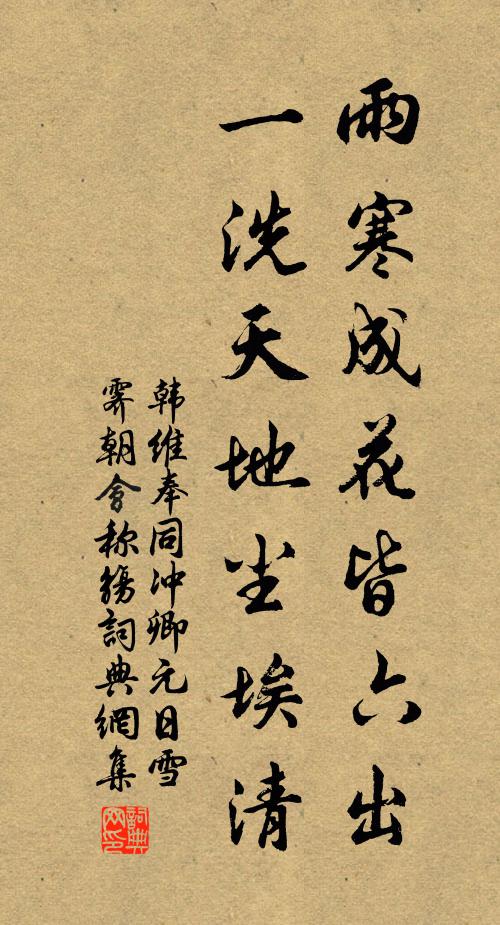 雨寒成花皆六出
一洗天地尘埃清
韩维奉同冲卿元日雪
霁朝會称觞詞典網集
詞典网印